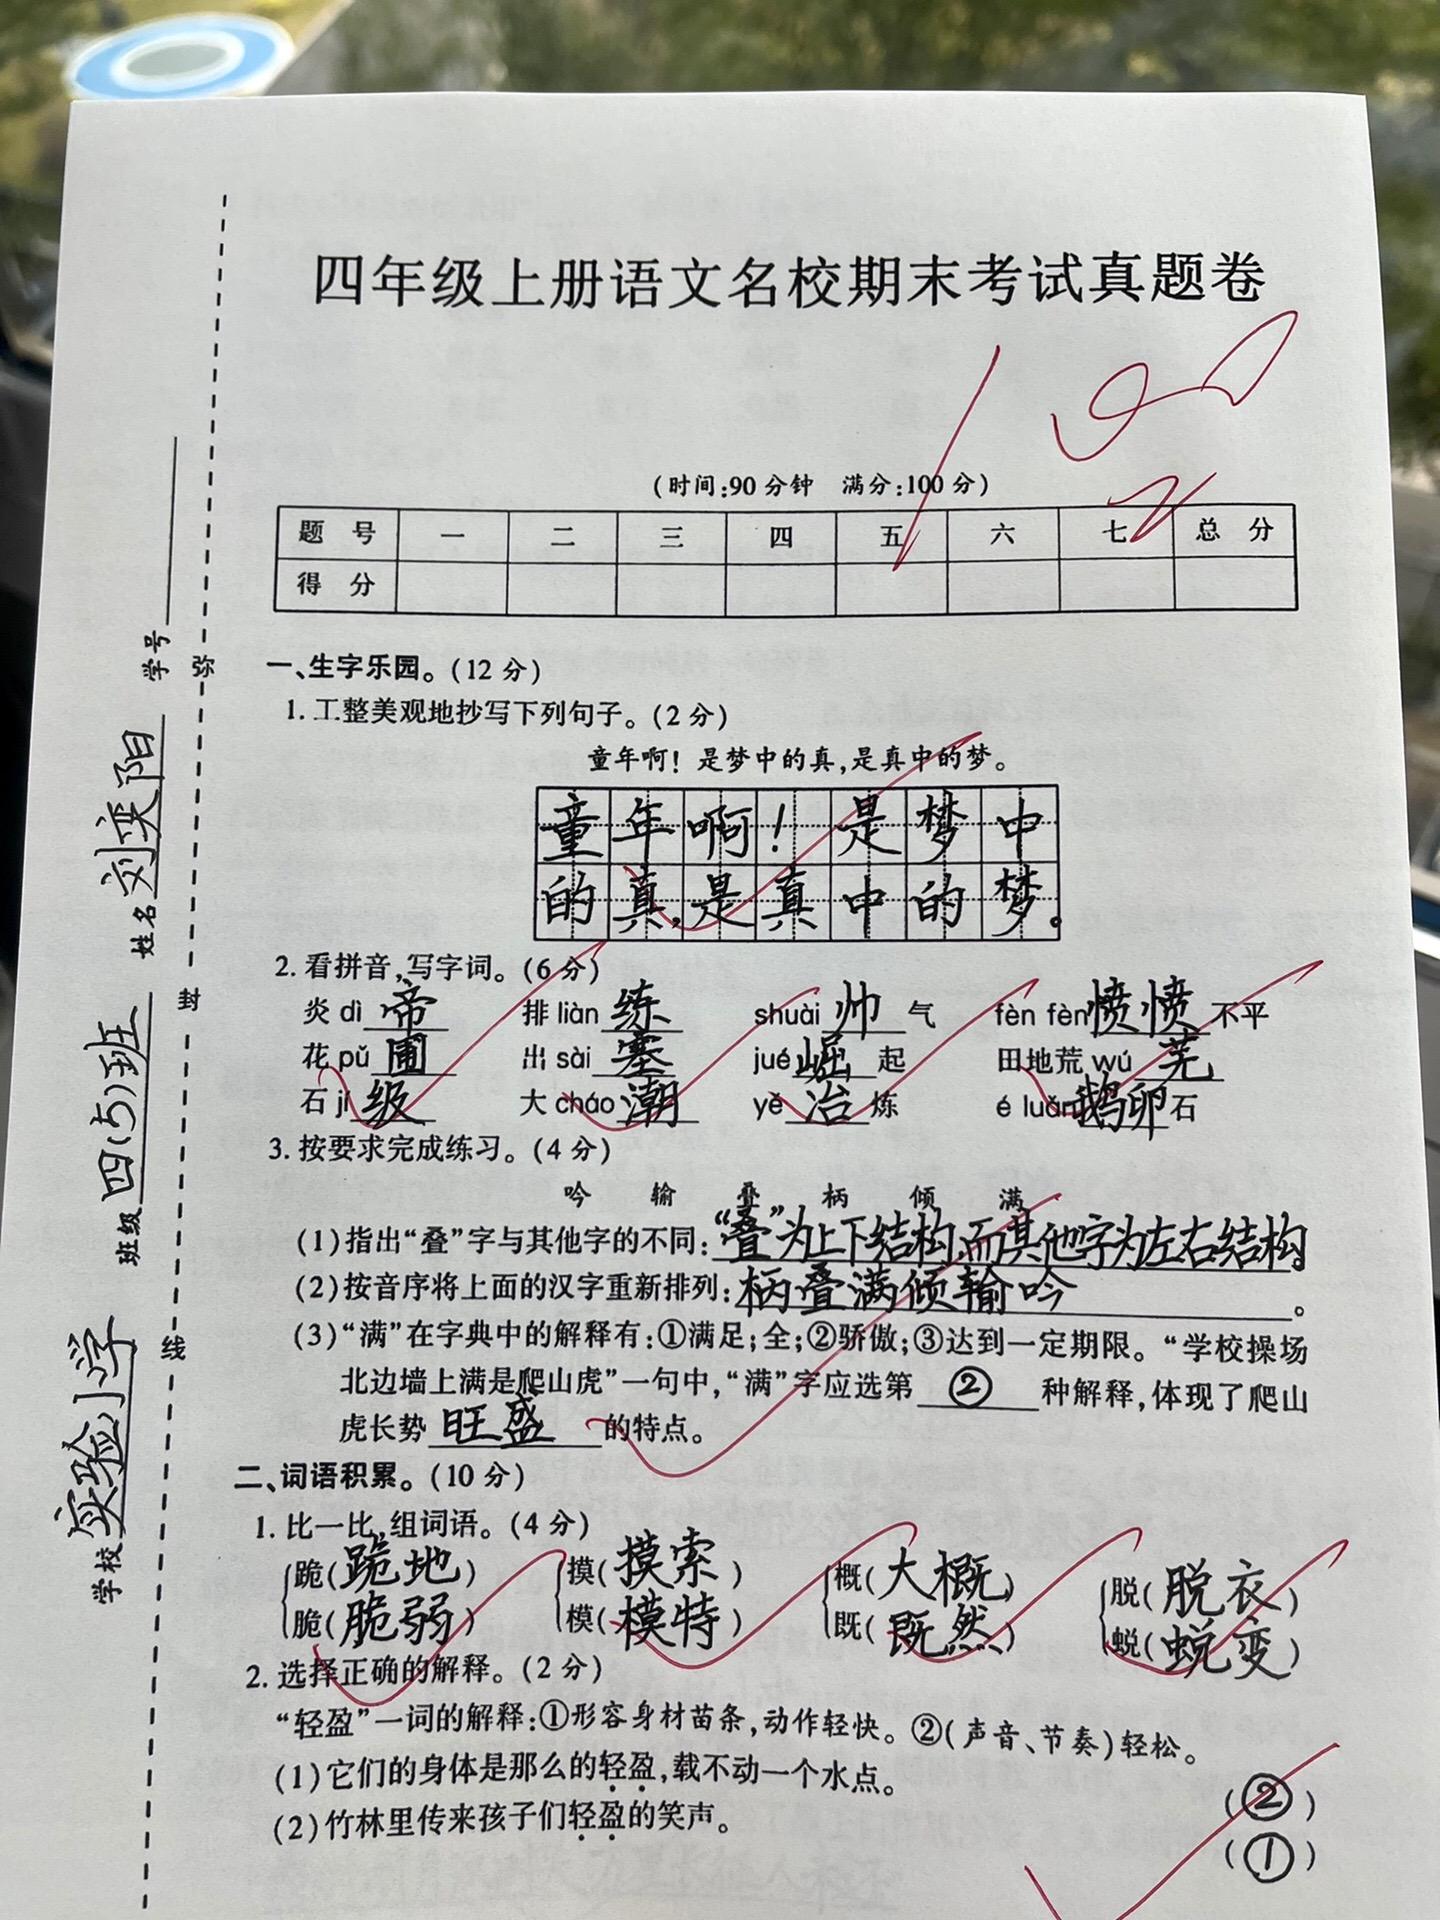 四年级上册语文名校期末考试真题卷
(时间:90分钟 满分:100分)
题号 一 二 三 四 五 六 七 总分
得分
学校 实验小学 班级 四(5)班 姓名 刘奕阳 学号
弥 封 线
一、生字乐园。(12分)
1.工整美观地抄写下列句子。(2分)
童年啊!是梦中的真,是真中的梦。
童年啊!是梦中
的真,是真中的梦。
2.看拼音,写字词。(6分)
炎dì 帝 排liàn 练 shuài 帅 气 fèn fèn 愤愤 不平
花pǔ 圃 出sài 塞 jué 崛 起 田地荒wú 芜
石jí 级 大cháo 潮 yě 冶 炼 é luǎn 鹅卵 石
3.按要求完成练习。(4分)
吟 输 叠 柄 倾 满
(1)指出“叠”字与其他字的不同:“叠”为上下结构,而其他字为左右结构。
(2)按音序将上面的汉字重新排列:柄叠满倾输吟。
(3)“满”在字典中的解释有:①满足;全;②骄傲;③达到一定期限。“学校操场
北边墙上满是爬山虎”一句中,“满”字应选第 ② 种解释,体现了爬山
虎长势 旺盛 的特点。
二、词语积累。(10分)
1.比一比,组词语。(4分)
跪(跪地) 摸(摸索) 概(大概) 脱(脱衣)
脆(脆弱) 模(模特) 既(既然) 蜕(蜕变)
2.选择正确的解释。(2分)
“轻盈”一词的解释:①形容身材苗条,动作轻快。②(声音、节奏)轻松。
(1)它们的身体是那么的轻盈,载不动一个水点。 (②)
(2)竹林里传来孩子们轻盈的笑声。 (①)